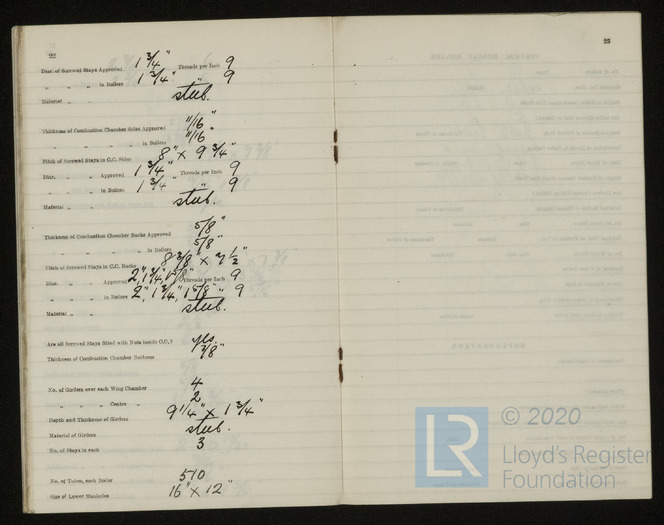 22
Diar. of Screwed Stays Approved 1 3/4" Threads per Inch 9
" " " in Boilers 1 3/4" " 9
Material " " steel.
Thickness of Combustion Chamber Sides Approved 11/16"
" " " " in Boilers 11/16"
Pitch of Screwed Stays in C.C. Sides 8" × 9 3/4"
Diar. " " Approved 1 3/4" Threads per Inch 9
" " " in Boilers 1 3/4" " 9
Material " " steel.
Thickness of Combustion Chamber Backs Approved 5/8"
" " " " in Boilers 5/8"
Pitch of Screwed Stays in C.C. Backs 8 3/8" × 7 1/2"
Diar. " " Approved 2", 1 3/4", 1 5/8" Threads per Inch 9
" " " in Boilers 2", 1 3/4", 1 5/8" " 9
Material " " steel.
Are all Screwed Stays fitted with Nuts inside C.C.? yes.
Thickness of Combustion Chamber Bottoms
No. of Girders over each Wing Chamber 4
" " " Centre " 2
Depth and Thickness of Girders 9 1/4" × 1 3/4"
Material of Girders steel.
No. of Stays in each 3
No. of Tubes, each Boiler 510
Size of Lower Manholes 16" × 12"
23
LR
© 2020
Lloyd's Register
Foundation